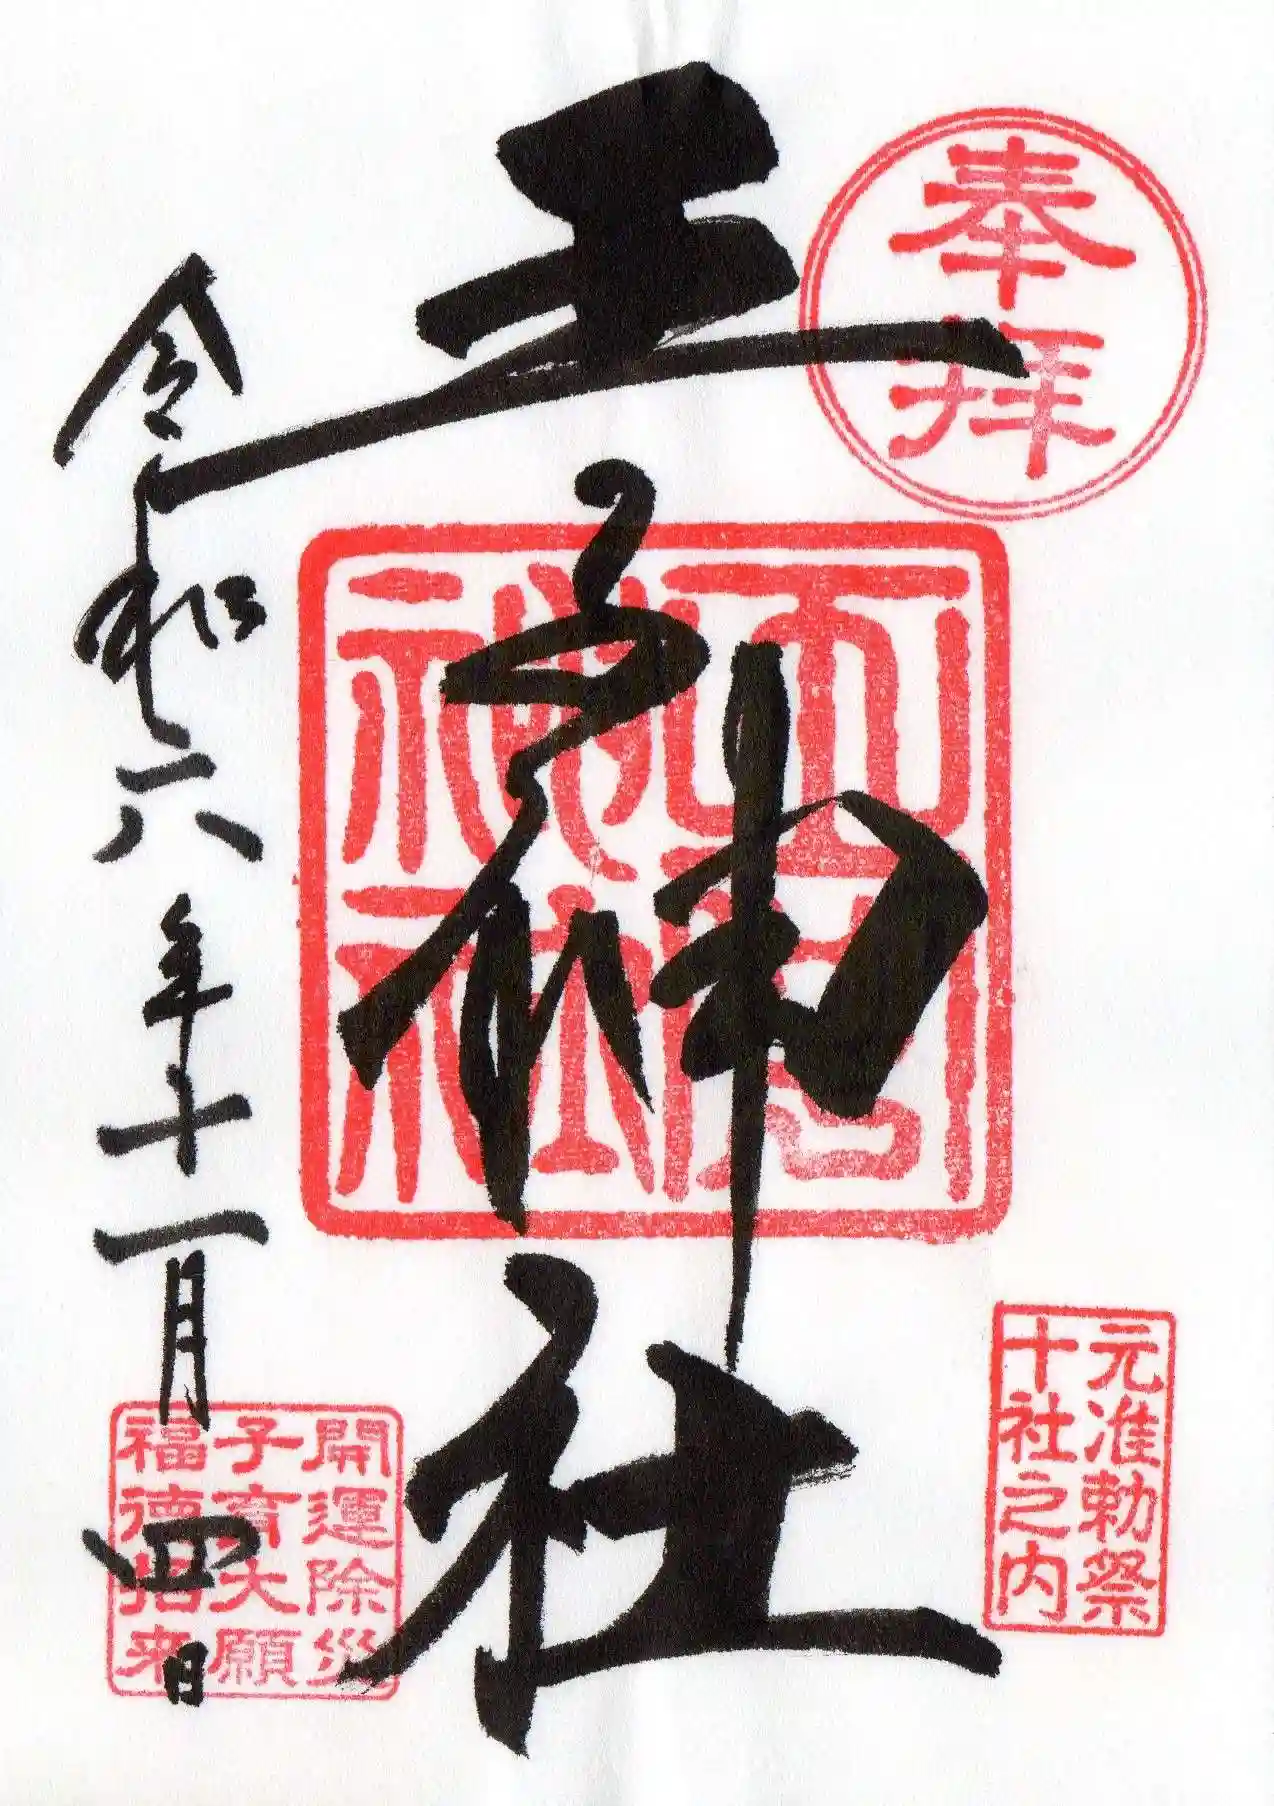 奉拝
元准勅祭
十社之内
王子神社
開運除災
子育大願
福徳招来
令和六年十一月四日